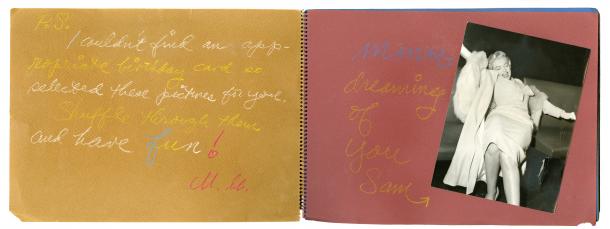 P.S.
I couldn't find an app-
ropriate birthday card so
selected these pictures for you.
Shuffle through them
and have fun!
M. M.
mmmm
dreaming
of
you
Sam